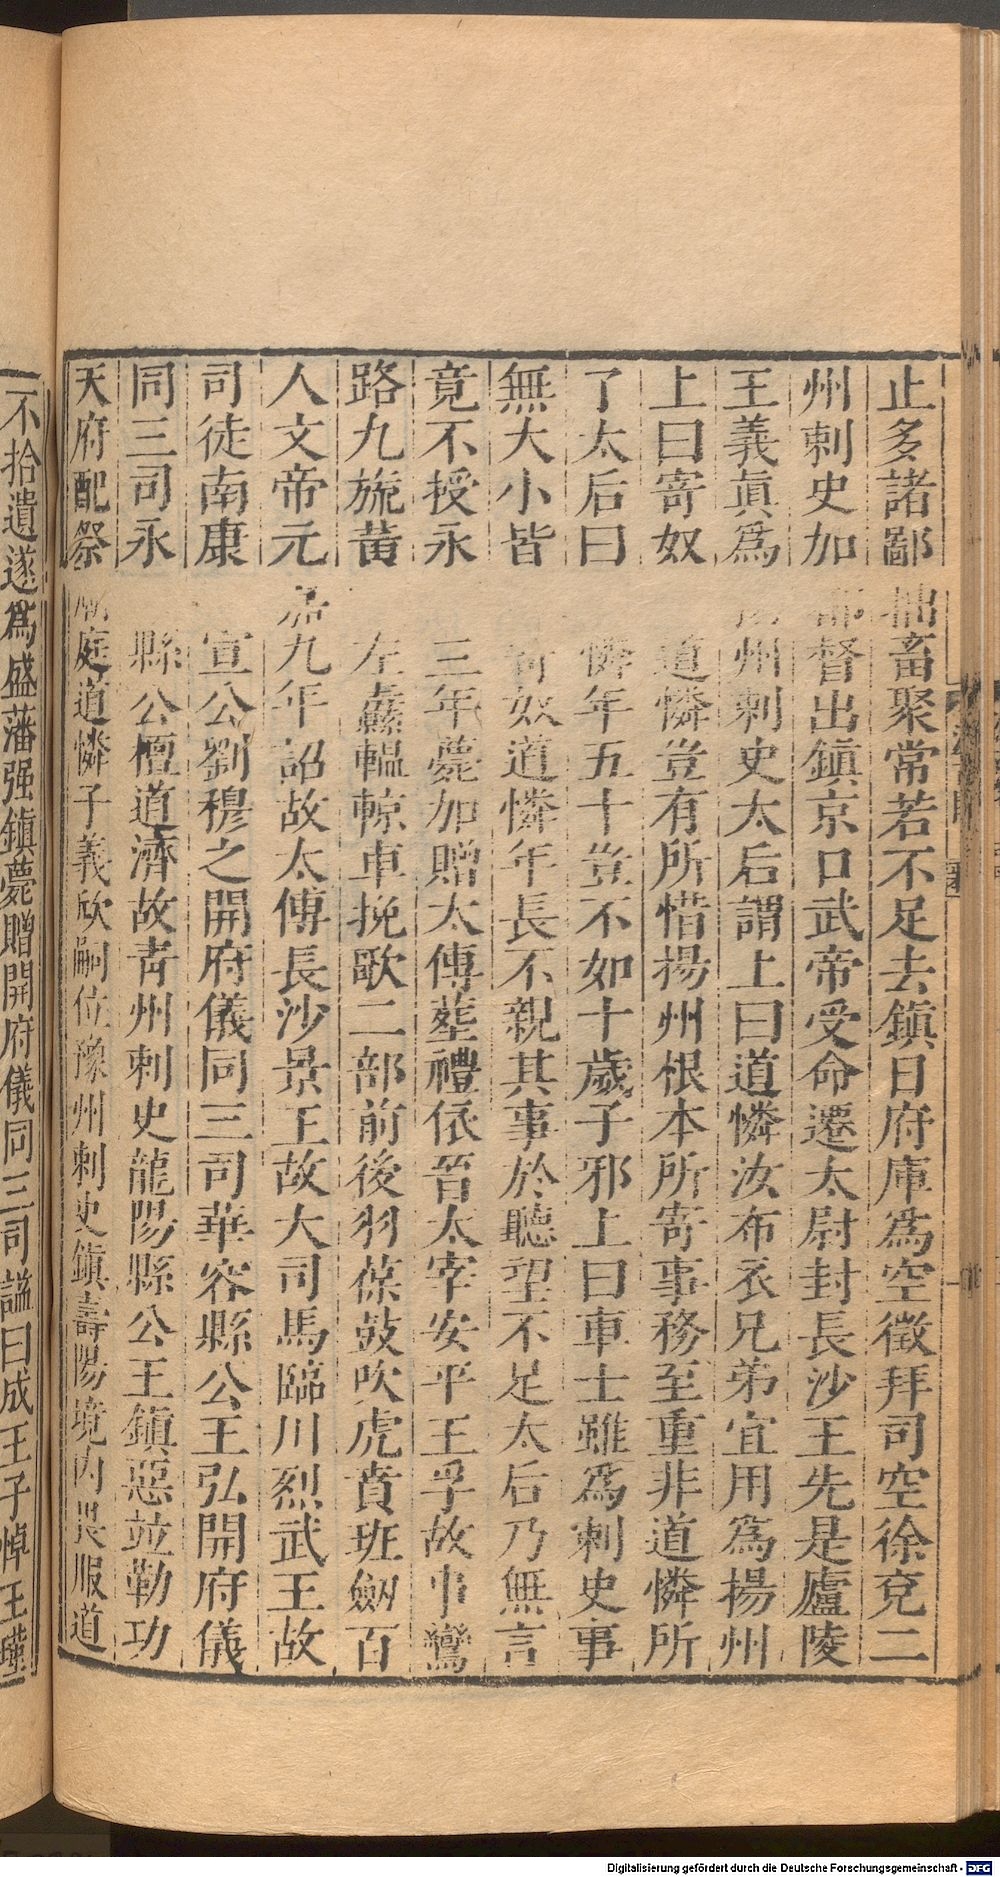 止多諸鄙拙畜聚常若不足去鎮日府庫爲空徵拜司空徐兗二
州刺史加都督出鎮京口武帝受命遷太尉封長沙王先是廬陵
王義眞爲揚州刺史太后謂上曰道憐汝布衣兄弟宜用爲揚州
上曰寄奴道憐豈有所惜揚州根本所寄事務至重非道憐所
了太后曰憐年五十豈不如十歲子邪上曰車士雖爲刺史事
無大小皆寄奴道憐年長不親其事於聽望不足太后乃無言
竟不授永三年薨加贈太傅塟禮依晉太宰安平王孚故事鸞
路九旒黃左纛轀輬車挽歌二部前後羽葆鼓吹虎賁班劒百
人文帝元嘉九年詔故太傅長沙景王故大司馬臨川烈武王故
司徒南康宣公劉穆之開府儀同三司華容縣公王弘開府儀
同三司永縣公檀道濟故青州刺史龍陽縣公王鎮惡竝勒功
天府配祭廟庭道憐子義欣嗣位豫州刺史鎮壽陽境內畏服道
不拾遺遂爲盛藩强鎮薨贈開府儀同三司謚曰成王子悼王瑾
Digitalisierung gefördert durch die Deutsche Forschungsgemeinschaft - DFG